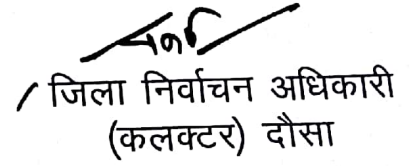 जिला निर्वाचन अधिकारी
(कलक्टर) दौसा